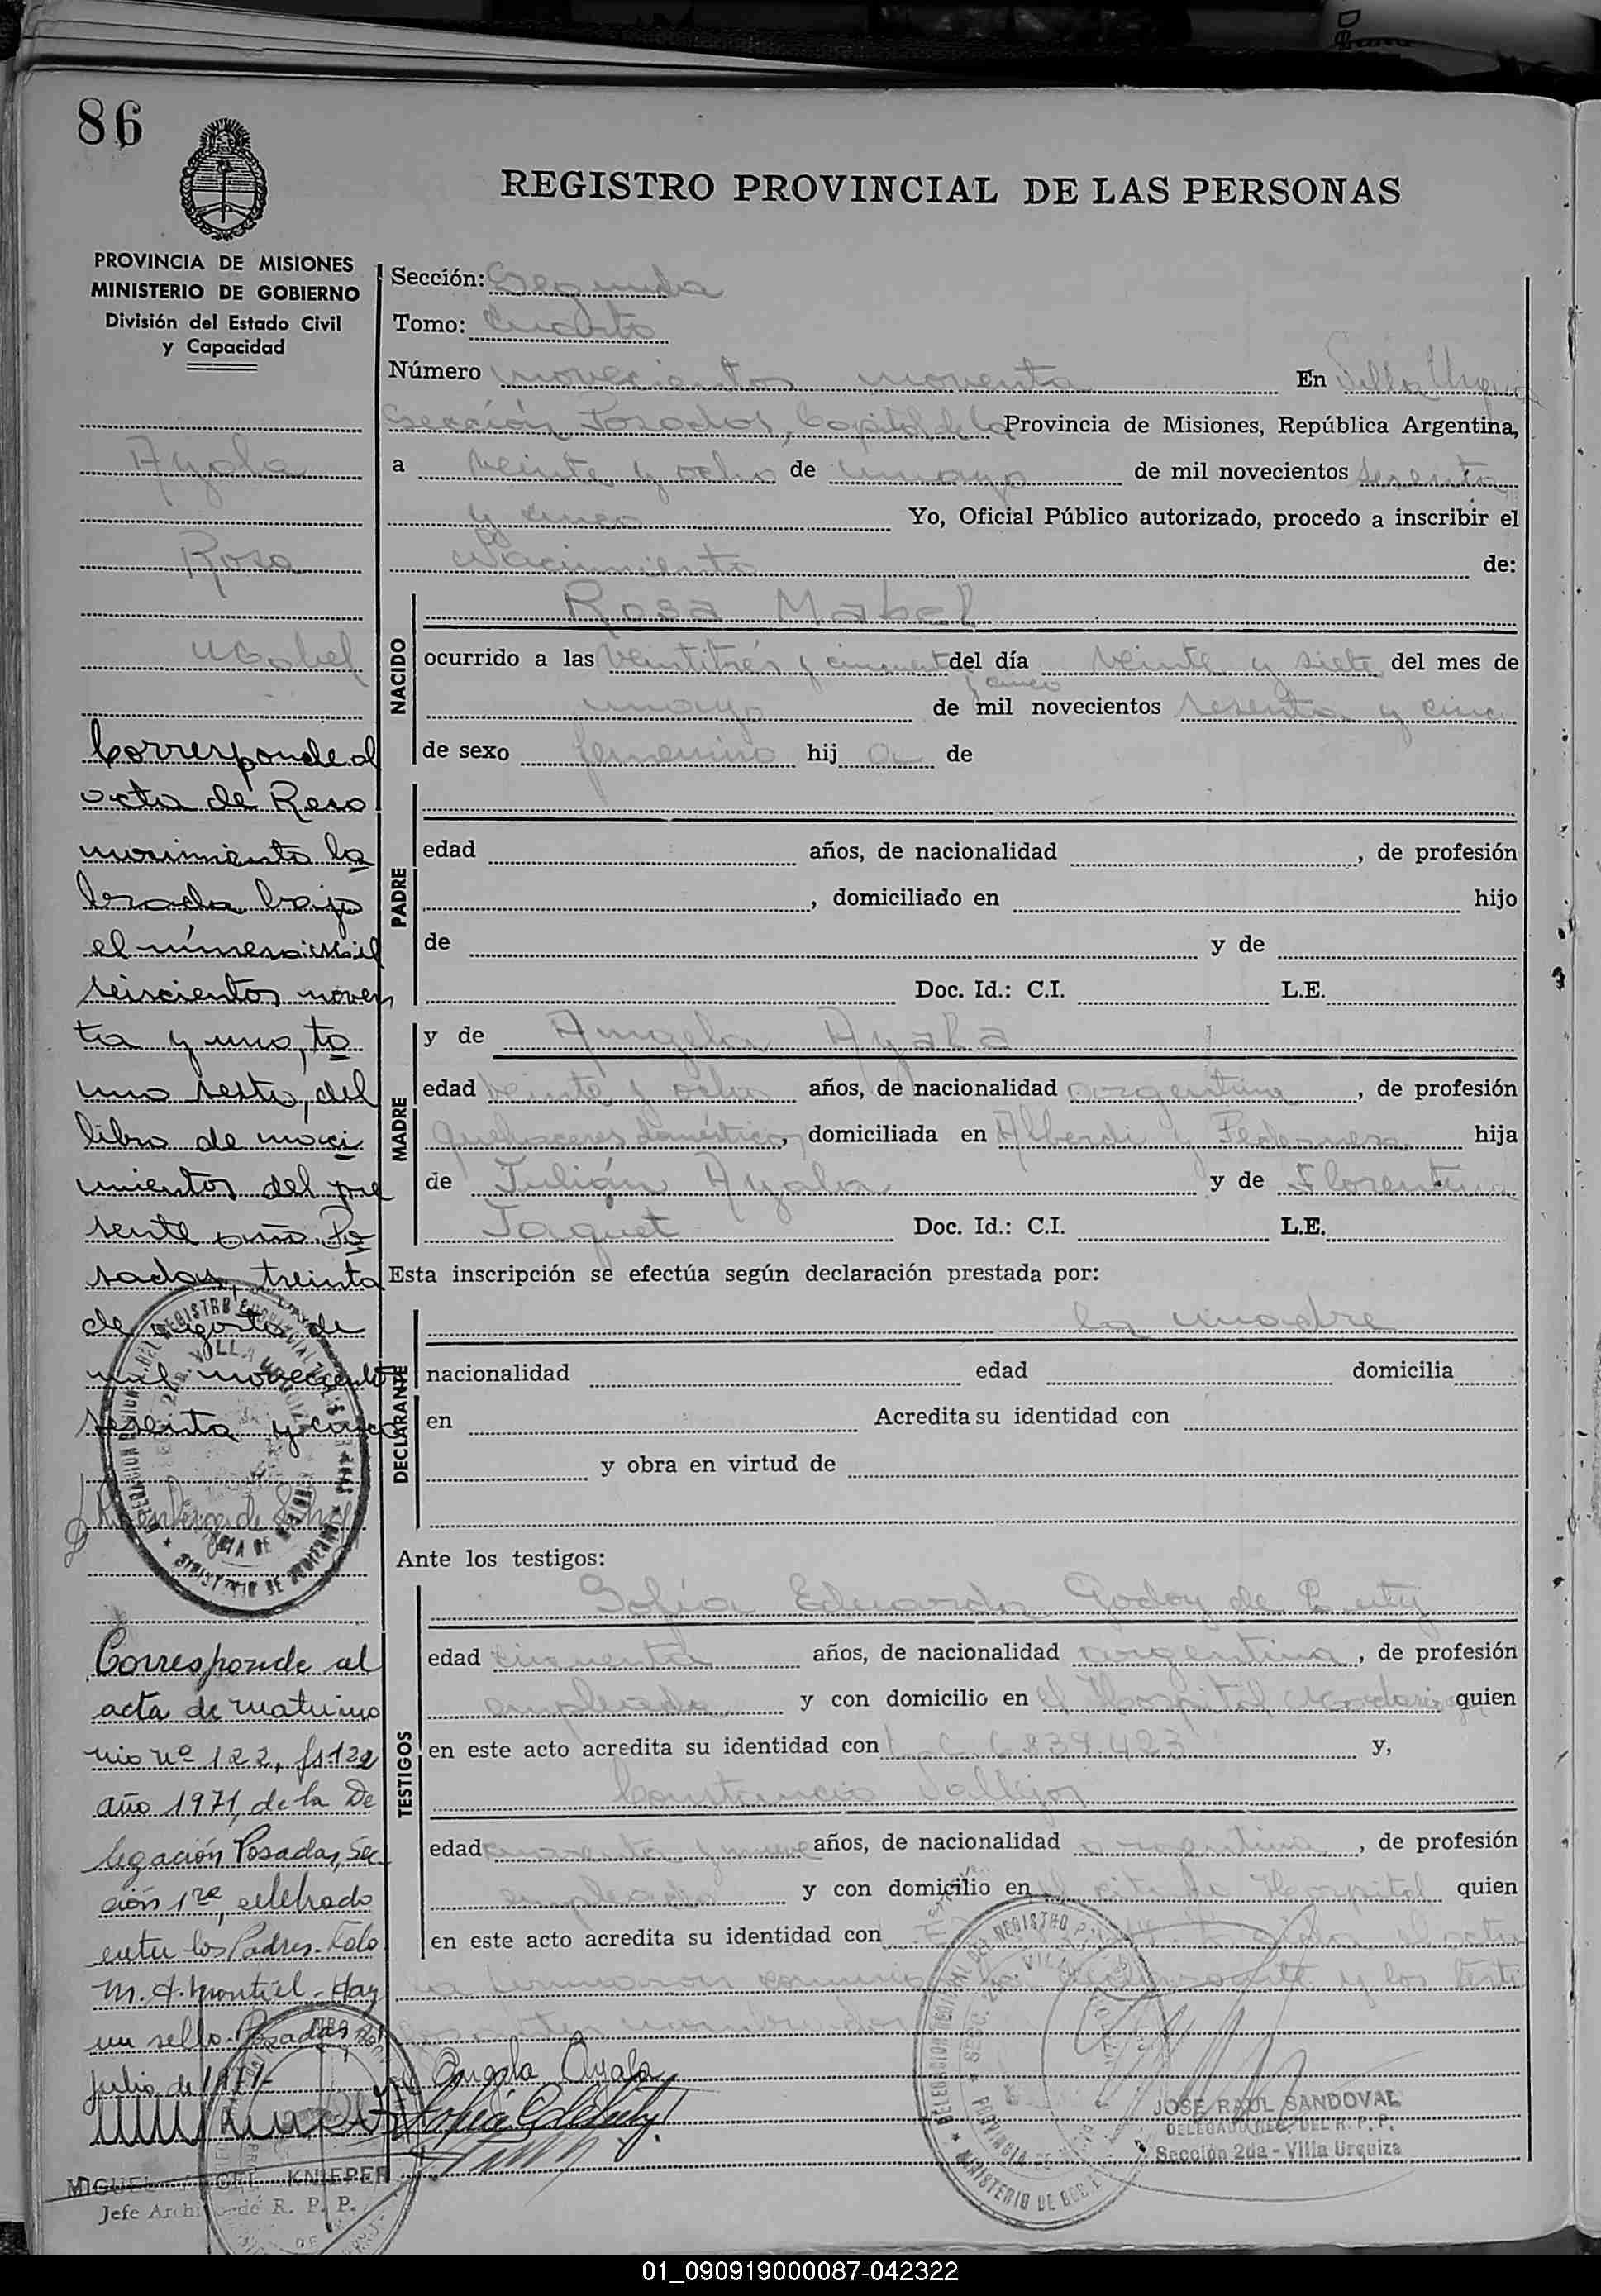 86
REGISTRO PROVINCIAL DE LAS PERSONAS
PROVINCIA DE MISIONES
MINISTERIO DE GOBIERNO
División del Estado Civil
y Capacidad
Ayala
Rosa
Mabel
Corresponde al
acta de Reco
nocimiento la
brada bajo
el número: mil
seiscientos noven
ta y uno, to
mo sexto, del
libro de naci
mientos del pre
sente año. Po
sadas, treinta
de agosto de
mil novecientos
sesenta y cinco
Corresponde al
acta de matrimo
nio nº 122, fs 122
año 1971, de la De
legación Posadas, Sec
ción 1ra, celebrado
entre los Padres. Folo
M. A. Montiel - Hay
un sello. Posadas
julio de 1971-
MIGUEL ANGEL KNIEPER
Jefe Archivo de R. P. P.
Sección: Segunda
Tomo: Cuarto
Número novecientos noventa En Villa Urquiza
Sección Posadas, Capital de la Provincia de Misiones, República Argentina,
a veinte y ocho de mayo de mil novecientos sesenta
y cinco Yo, Oficial Público autorizado, procedo a inscribir el
Nacimiento de:
NACIDO
Rosa Mabel
ocurrido a las veintitrés y cincuent del día veinte y siete del mes de
y cinco
mayo de mil novecientos sesenta y cinc
de sexo femenino hij a de
PADRE
edad años, de nacionalidad , de profesión
, domiciliado en hijo
de y de
Doc. Id.: C.I. L.E.
MADRE
y de Angela Ayala
edad veinte y ocho años, de nacionalidad argentina, de profesión
quehaceres domésticos, domiciliada en Alberdi y Pedernera hija
de Julián Ayala y de Florentina
Jaquet Doc. Id.: C.I. L.E.
Esta inscripción se efectúa según declaración prestada por:
DECLARANTE
la madre
nacionalidad edad domicilia
en Acredita su identidad con
y obra en virtud de
Ante los testigos:
TESTIGOS
Sofía Eduarda Godoy de
edad cincuenta años, de nacionalidad argentina, de profesión
empleada y con domicilio en el Hospital Madariaga quien
en este acto acredita su identidad con L C 6839.423 y,
Constancio Vallejos
edad cuarenta y nueve años, de nacionalidad argentina, de profesión
empleado y con domicilio en el cita do Hospital quien
en este acto acredita su identidad con el acta
la firmaron conmigo la declarante y los testi
gos antes nombrados
Angela Ayala
JOSE RAUL SANDOVAL
DELEGADO REG. DEL R. P. P.
Sección 2da - Villa Urquiza
01_090919000087-042322